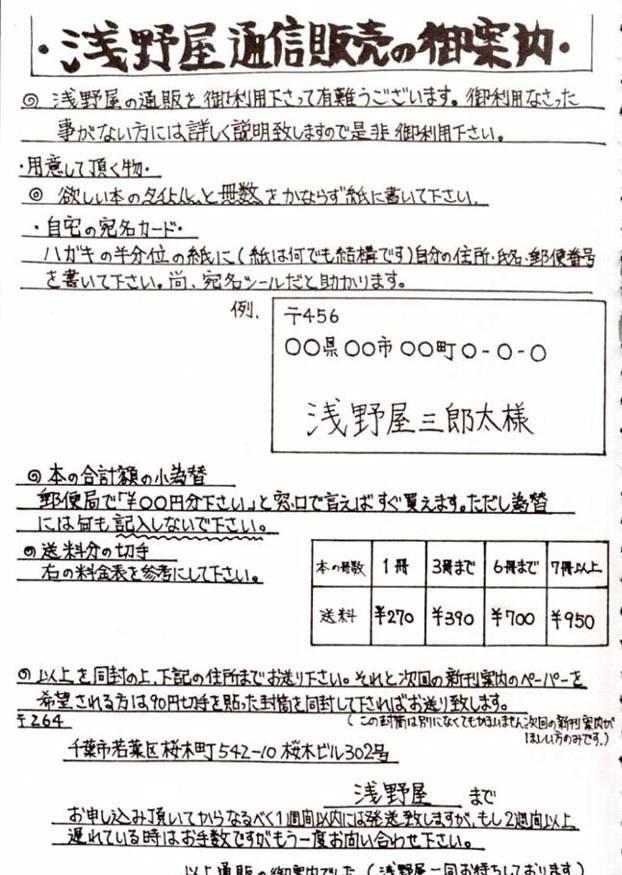 ・浅野屋通信販売の御案内・
◎ 浅野屋の通販を御利用下さって有難うございます。御利用なさった
事がない方には詳しく説明致しますので是非御利用下さい。
・用意して頂く物・
◎ 欲しい本のタイトルと冊数をかならず紙に書いて下さい。
・自宅の宛名カード・
ハガキの半分位の紙に(紙は何でも結構です)自分の住所・氏名・郵便番号
を書いて下さい。尚、宛名シールだと助かります。
例、
〒456
〇〇県〇〇市〇〇町〇-〇-〇
浅野屋三郎太様
◎本の合計額の小為替
郵便局で「¥〇〇円分下さい」と窓口で言えばすぐ買えます。ただし為替
には何も記入しないで下さい。
◎送料分の切手
右の料金表を参考にして下さい。
本の冊数 1冊 3冊まで 6冊まで 7冊以上
送料 ¥270 ¥390 ¥700 ¥950
◎以上を同封の上、下記の住所までお送り下さい。それと次回の新刊案内のペーパーを
希望される方は90円切手を貼った封筒を同封して下さればお送り致します。
(この封筒は別になくてもかまいません次回の新刊案内が
ほしい方のみです。)
〒264
千葉市若葉区桜木町542-10 桜木ビル302号
浅野屋 まで
お申し込み頂いてからなるべく1週間以内には発送致しますが、もし2週間以上
遅れている時はお手数ですがもう一度お問い合わせ下さい。
以上通販の御案内でした(浅野屋一同お待ちしております)